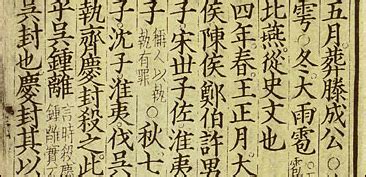 五月葬滕成公〇
雩〇冬大雨雹
北燕從史文也
四年春王正月大
侯陳侯鄭伯許男
子宋世子佐淮夷
子稱人以執執有罪〇秋七
子沈子淮夷伐吳
執齊慶封殺之此
乎吳鍾離言時殺慶鍾離實不
吳封也慶封其以